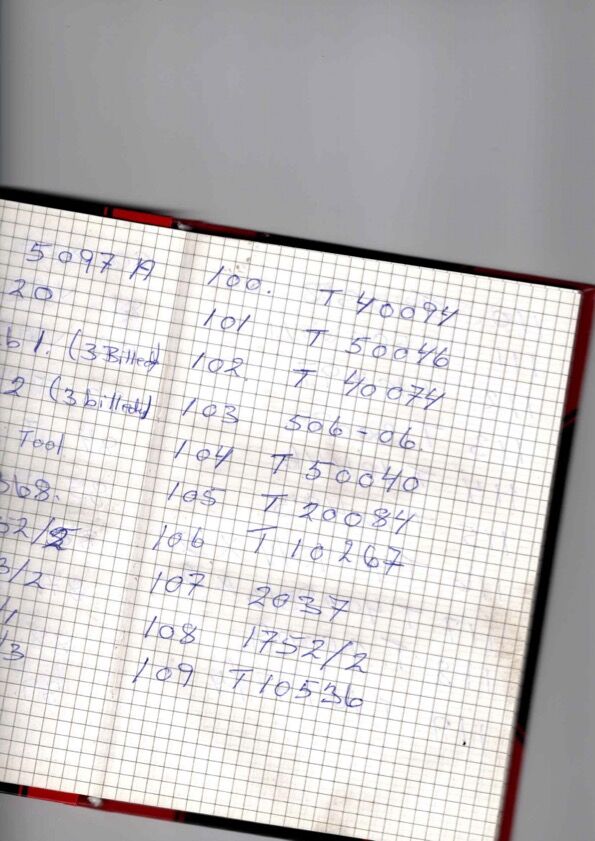 5097 A
20
b 1. (3 Billed)
2 (3 billeder)
Tool
368.
52/2
3/2
1/3
100. T 40094
101 T 50046
102. T 40074
103 506-06.
104 T 50040
105 T 20084
106 T 10267
107 2037
108 1752/2
109 T10536